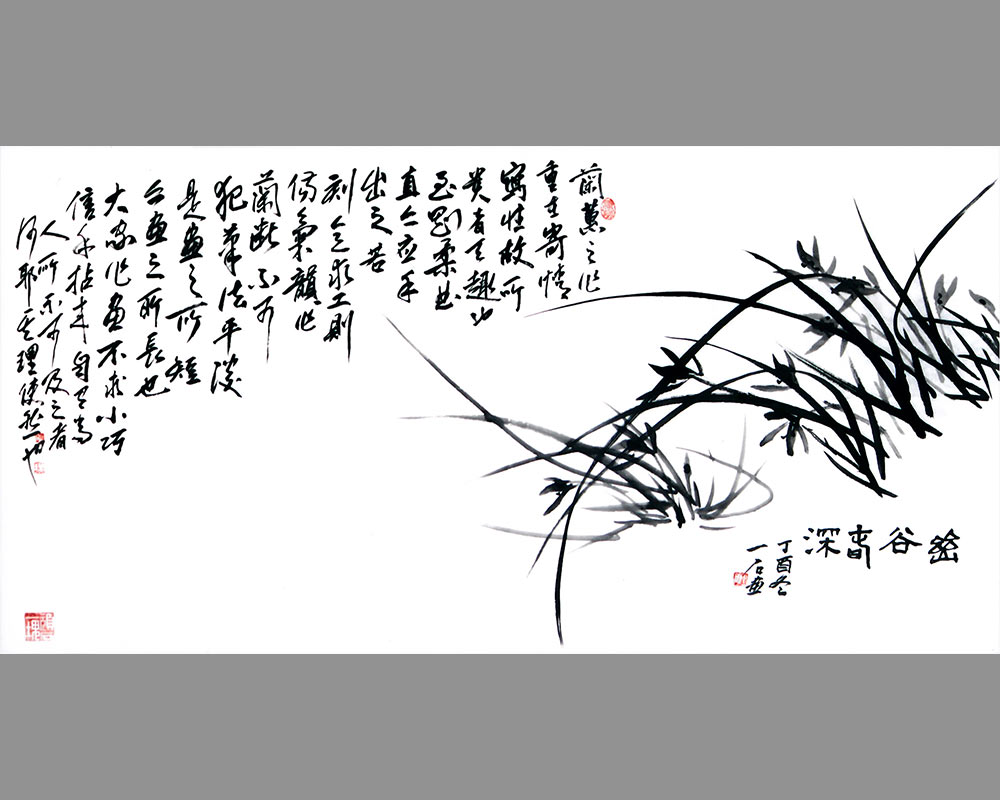 蘭蕙之作
重在寄情
寫性故所
貴者天趣也
至剛柔曲
直亦应手
出之若
刻意求工則
傷氣韻作
蘭斷不可
犯筆法平淡
是畫之所短
亦畫之所長也
大家作畫不求小巧
信手拈来自有高
人所不可及之者
何耶其理使然一石
幽谷春深
丁酉冬
一石畫